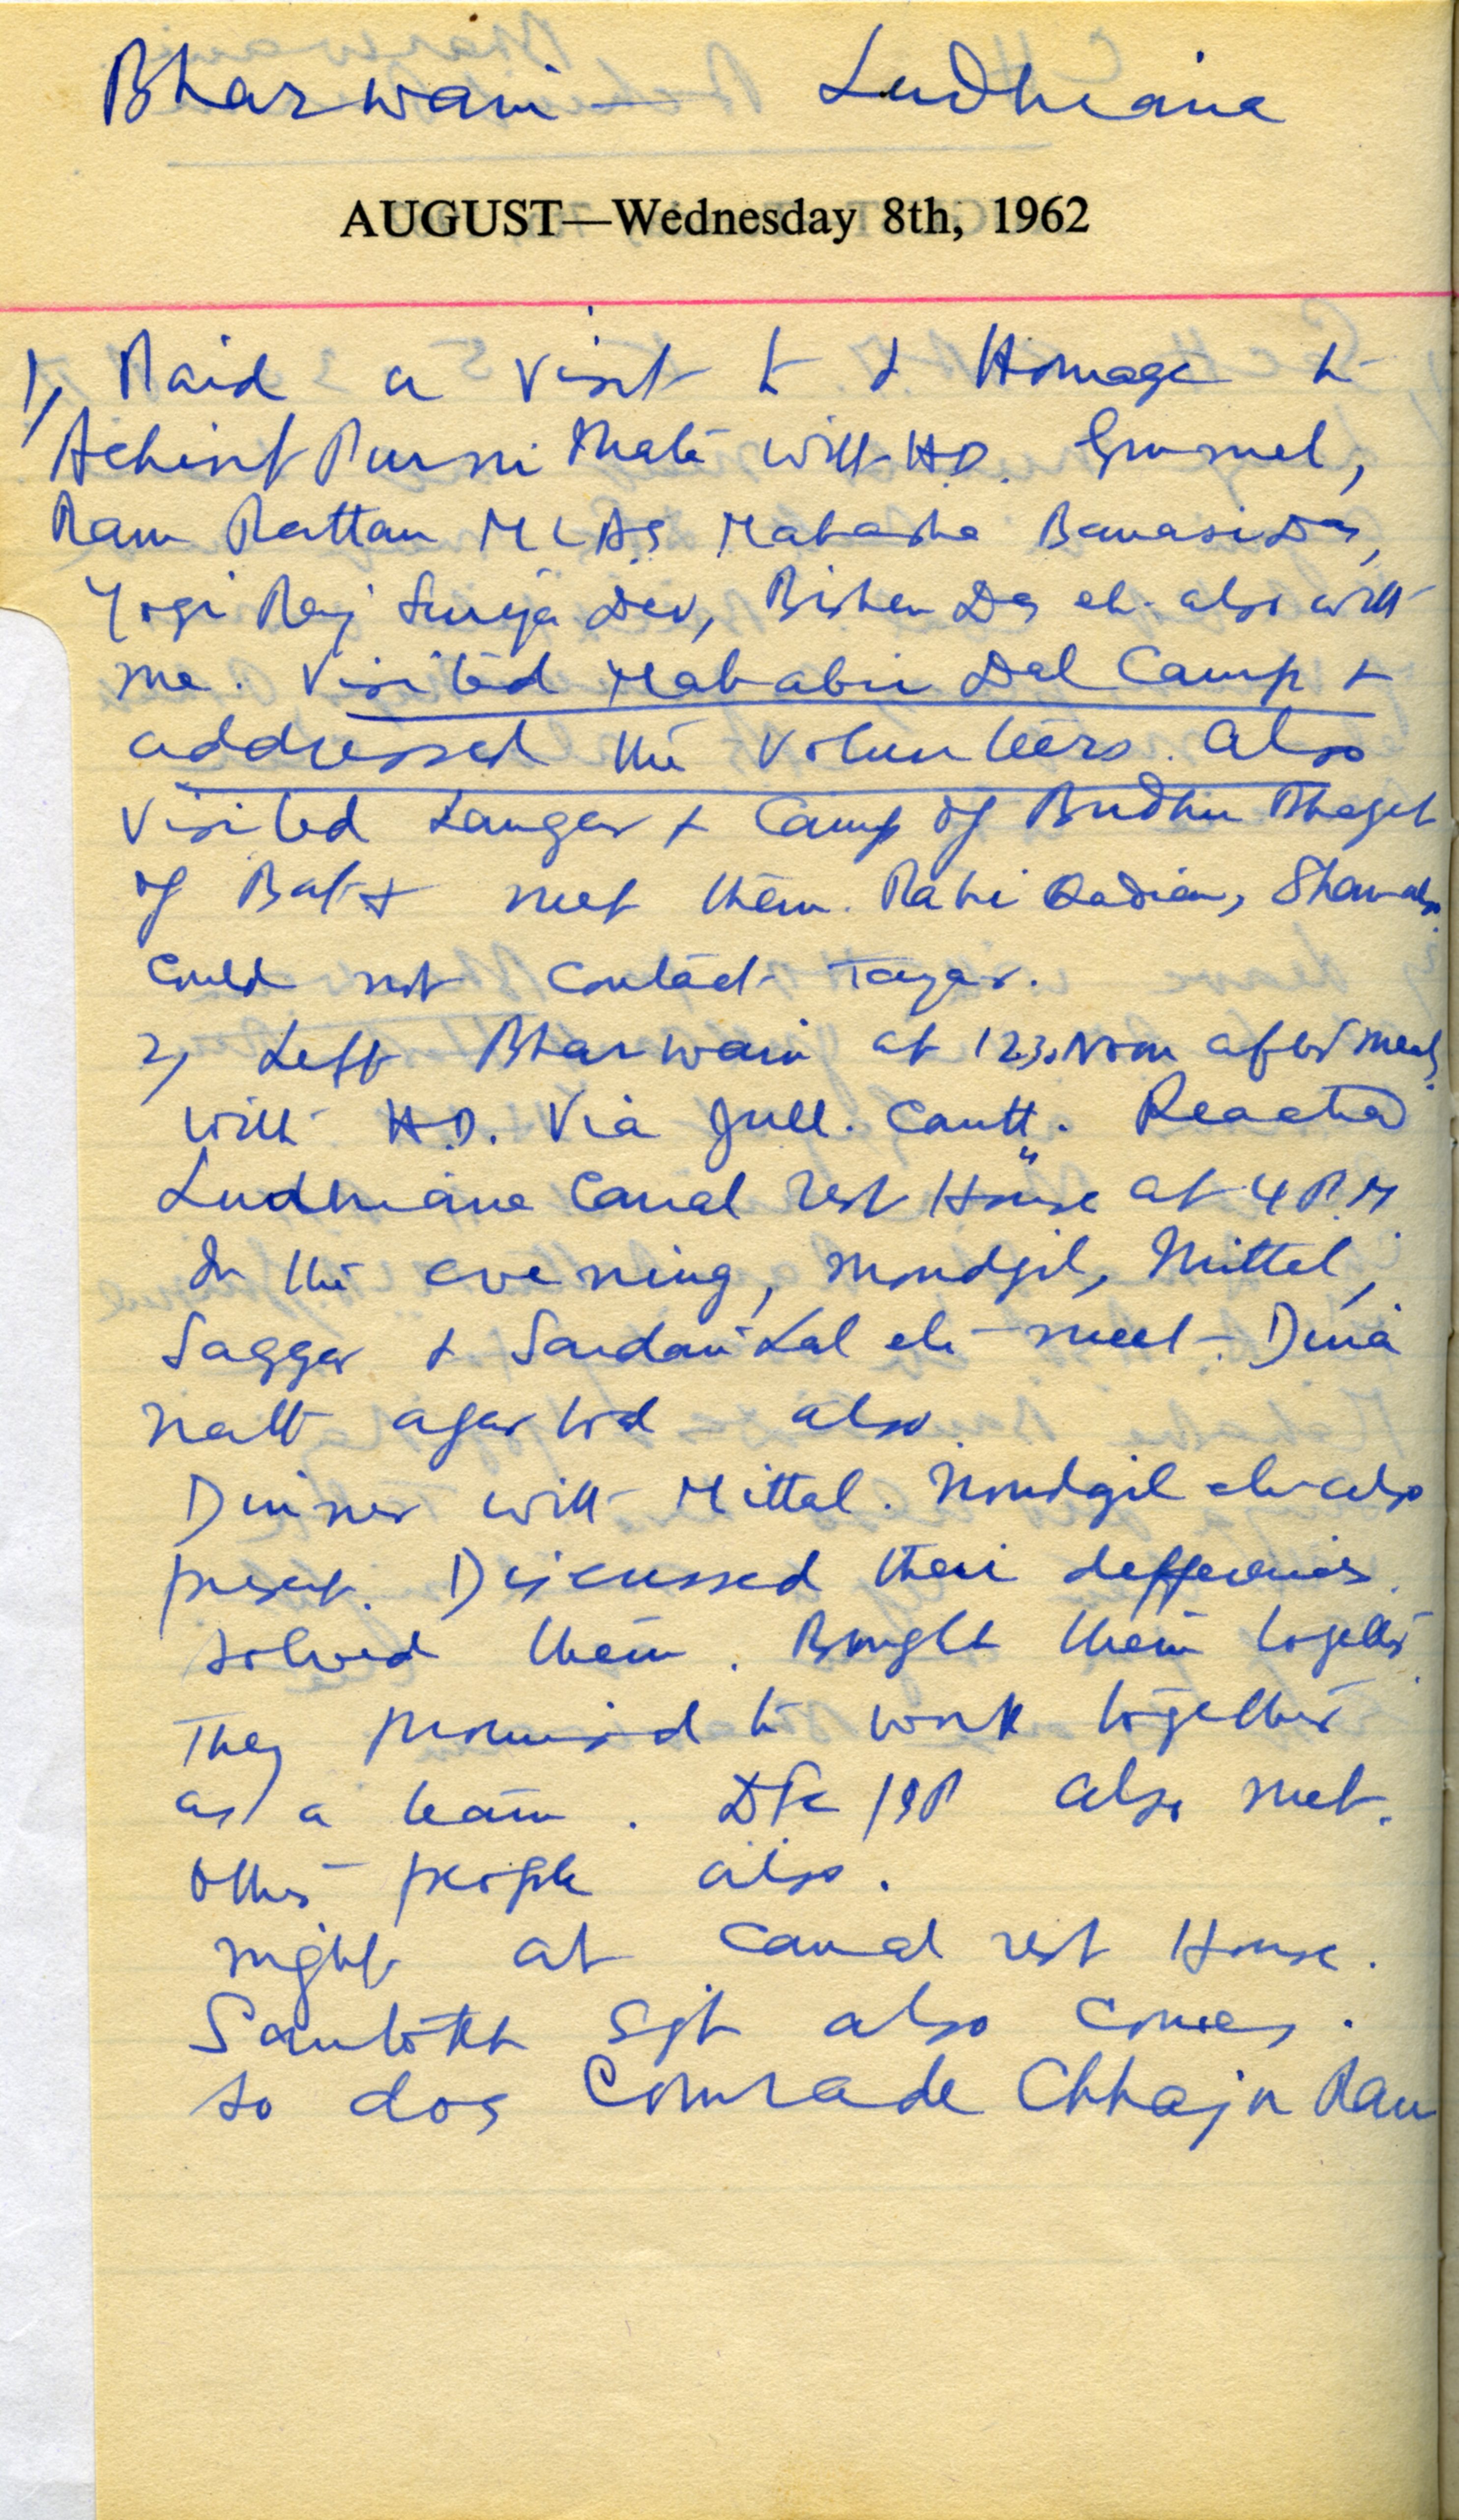 Bharwain — Ludhiana
AUGUST—Wednesday 8th, 1962
1) Paid a visit to & Homage to
Purni Mata with H.D. Gurmel,
Ram Rattan MLAS Mahasha Banarsi Das,
Yogi Raj Surya Dev, Bishen Das etc. also with
me. Visited Mahabir Dal Camp &
addressed the Volunteers. Also
visited Langar & Camp of Budhu Bhagat
of Bat & met them. Rahi Qadian, Sham also.
Could not contact Tayar.
2) Left Bharwain at 12.30 Noon after meals
with H.D. Via Jull. Cantt. Reached
Ludhiana Canal rest House at 4 P.M.
In the evening, Moudgil, Mittal,
Saggar & Sardari Lal etc meet. Dina
Nath also.
Dinner with Mittal. Moudgil etc also
present. Discussed their differences.
solved them. Brought them together.
They promised to work together
as a team. also met.
Other people also.
night at canal rest House.
Santokh Sgh also comes.
So does Comrade Chhaju Ram